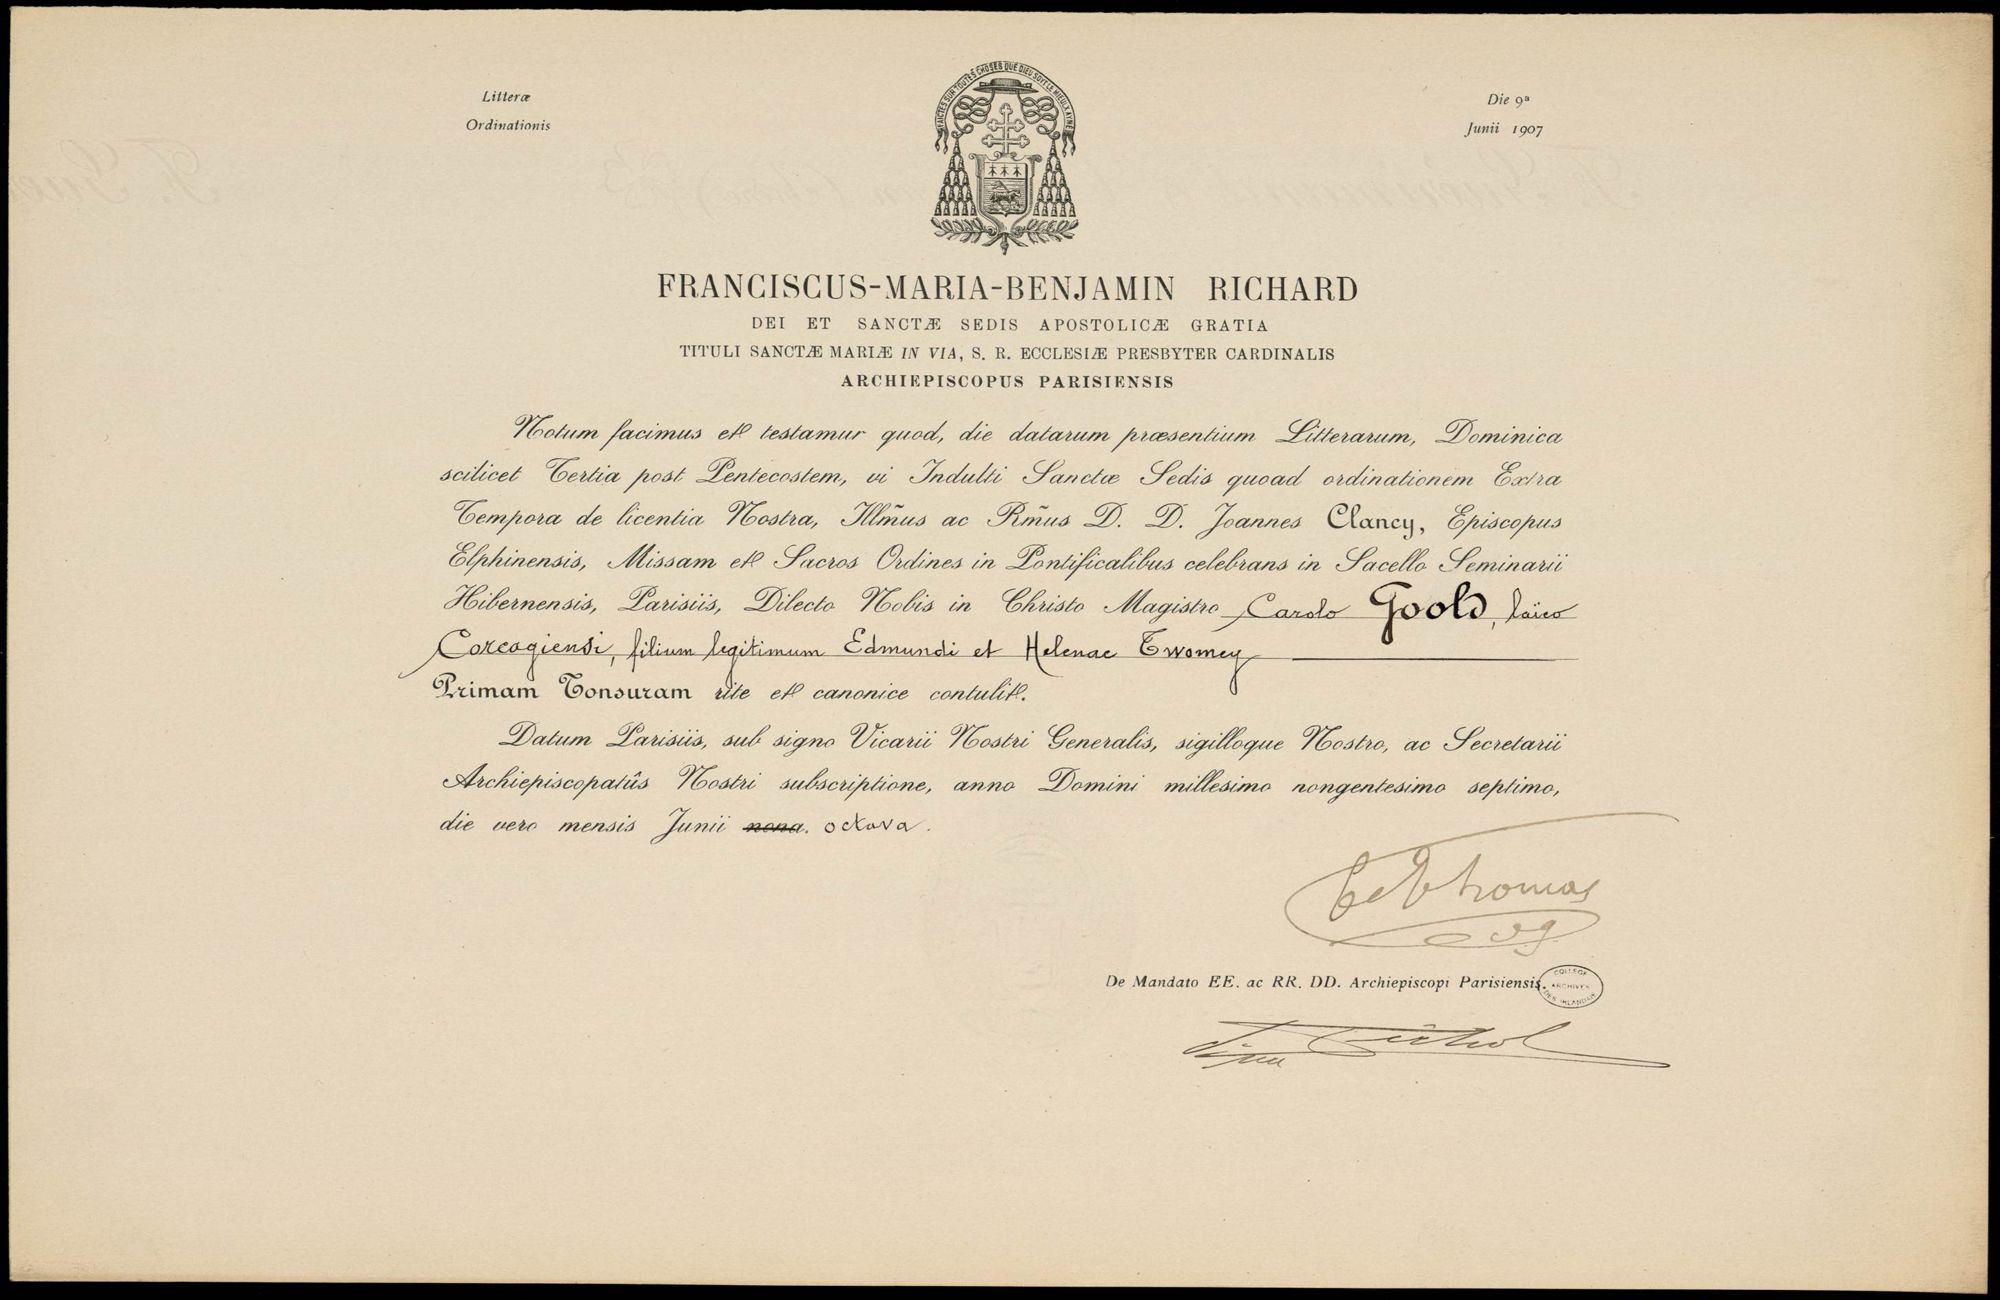 Litteræ
Ordinationis
Die 9ª
Junii 1907
FAICTES SUR TOUTES CHOSES QUE DIEU SOIT LE MIEULX AYMÉ
FRANCISCUS-MARIA-BENJAMIN RICHARD
DEI ET SANCTÆ SEDIS APOSTOLICÆ GRATIA
TITULI SANCTÆ MARIÆ IN VIA, S. R. ECCLESIÆ PRESBYTER CARDINALIS
ARCHIEPISCOPUS PARISIENSIS
Notum facimus et testamur quod, die datarum præsentium Litterarum, Dominica
scilicet Tertia post Pentecostem, vi Indulti Sanctæ Sedis quoad ordinationem Extra
Tempora de licentia Nostra, Illm̃us ac Rm̃us D. D. Joannes Clancy, Episcopus
Elphinensis, Missam et Sacros Ordines in Pontificalibus celebrans in Sacello Seminarii
Hibernensis, Parisiis, Dilecto Nobis in Christo Magistro Carolo Goold, laïco
Corcagiensi, filium legitimum Edmundi et Helenae Twomey
Primam Tonsuram rite et canonice contulit.
Datum Parisiis, sub signo Vicarii Nostri Generalis, sigilloque Nostro, ac Secretarii
Archiepiscopatûs Nostri subscriptione, anno Domini millesimo nongentesimo septimo,
die vero mensis Junii nona. octava.
Thomas
vg
De Mandato EE. ac RR. DD. Archiepiscopi Parisiensis.
COLLEGE
ARCHIVES
DES IRLANDAIS